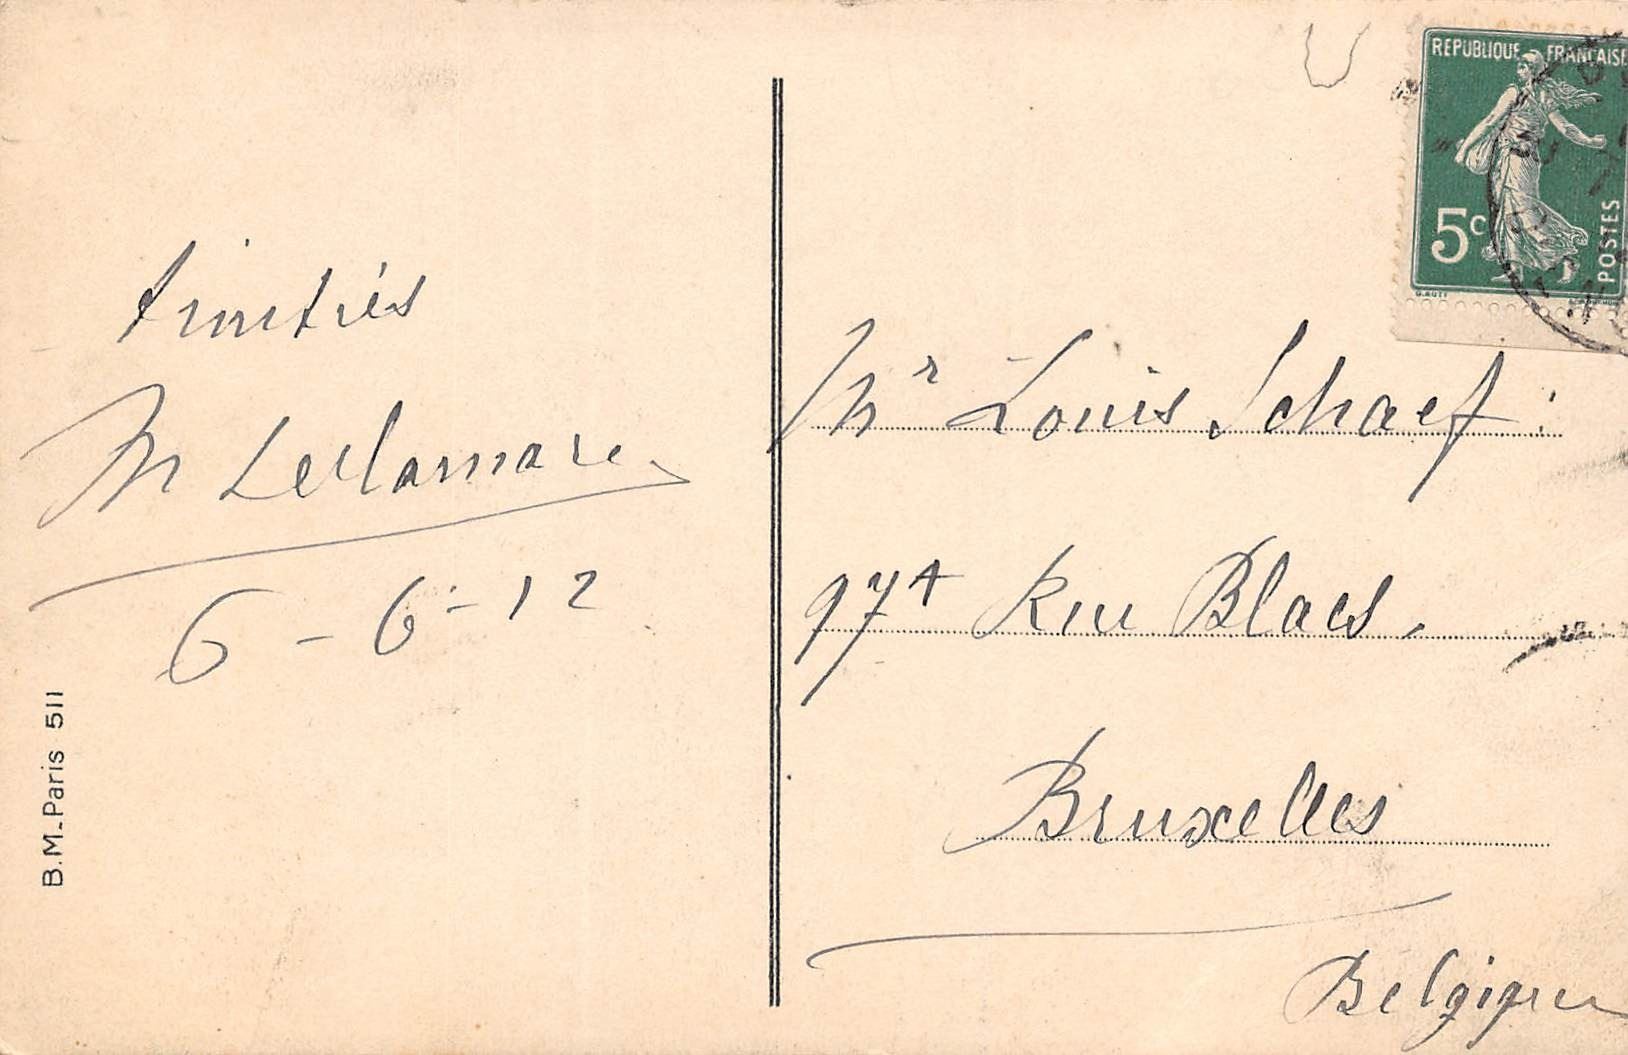 Amitiés
M Leclamare
6-6-12
B.M. Paris 511
REPUBLIQUE FRANÇAISE
5c
POSTES
Mr Louis Schaef:
97A Rue Blaes.
Bruxelles
Belgique